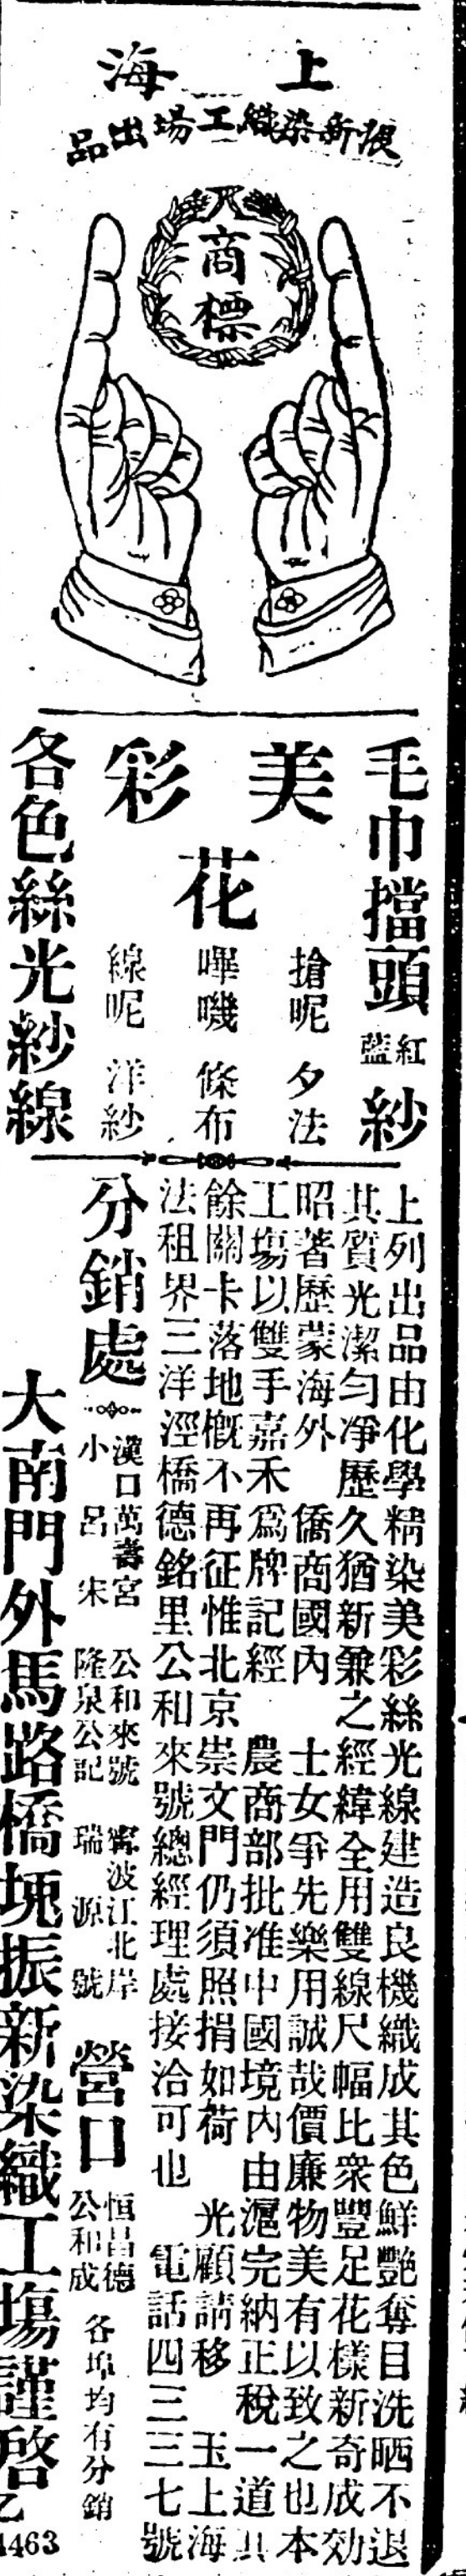 上海
振新染織工場出品
商標
毛巾擋頭紅藍紗
美彩花
搶呢 夕法
嗶嘰 條布
線呢 洋紗
各色絲光紗線
上列出品由化學精染美彩絲光線建造良機織成其色鮮艷奪目洗晒不退
其質光潔勻凈歷久猶新兼之經緯全用雙線尺幅比衆豐足花樣新奇成効
昭著歷蒙海外 僑商國內 士女爭先樂用誠哉價廉物美有以致之也本
工塲以雙手嘉禾爲牌記經 農商部批准中國境內由滬完納正稅一道其
餘關卡落地槪不再征惟北京崇文門仍須照捐如荷 光顧請移 玉上海
法租界三洋涇橋德銘里公和來號總經理處接洽可也 電話四三三七號
分銷處
漢口萬壽宮 公和來號
小呂宋 隆泉公記
寗波江北岸 瑞源號
營口 恒昌德 公和成
各埠均有分銷
大南門外馬路橋堍振新染織工塲謹啓
乙
1463